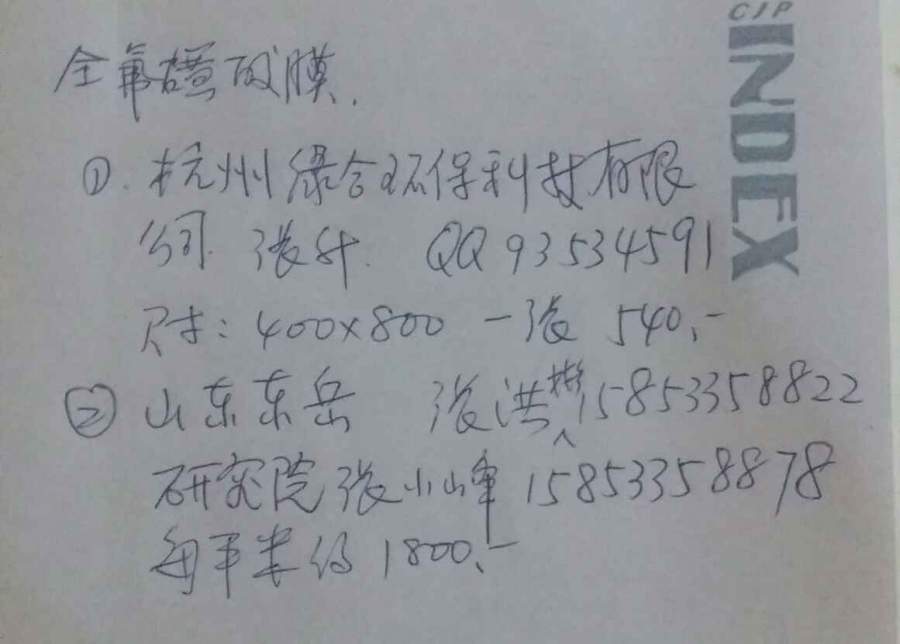 CJP
INDEX
全氟磺酸膜.
①. 杭州绿合环保科技有限
公司. 张叶. QQ 93534591
尺寸: 400×800 一张 540.-
② 山东东岳 张洪 15853358822
研究院张小峰 15853358878
每平米约 1800.-